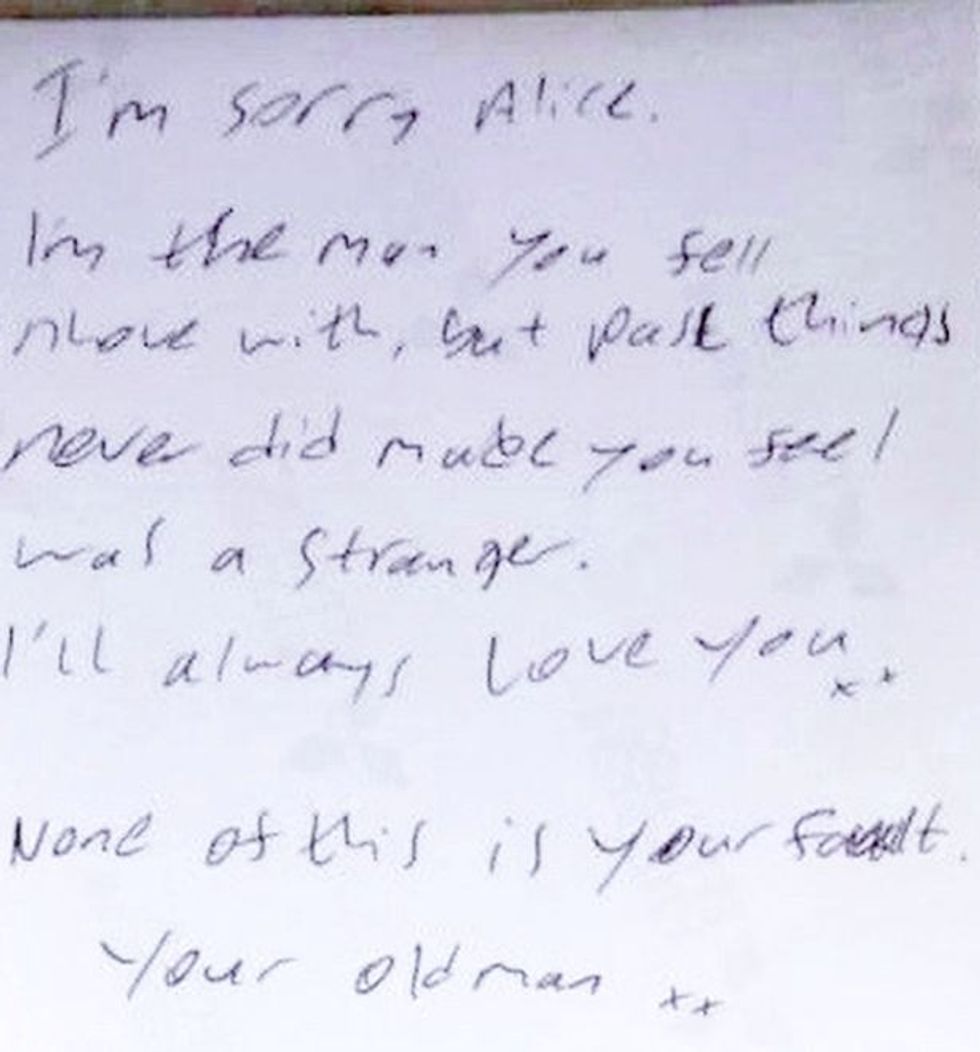 I'm sorry Alice.
I'm the man you fell
move with, but past things
never did made you feel
was a stranger.
I'll always love you xx
None of this is your fault.
Your oldman xx